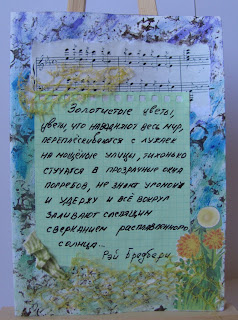 Золотистые цветы,
цветы, что наводняют весь мир,
переплёскиваются с лужаек
на мощёные улицы, тихонько
стучатся в прозрачные окна
погребов, не знают угомону
и удержу и всё вокруг
заливают слепящим
сверканием расплавленного
солнца...
Рэй Брэдбери